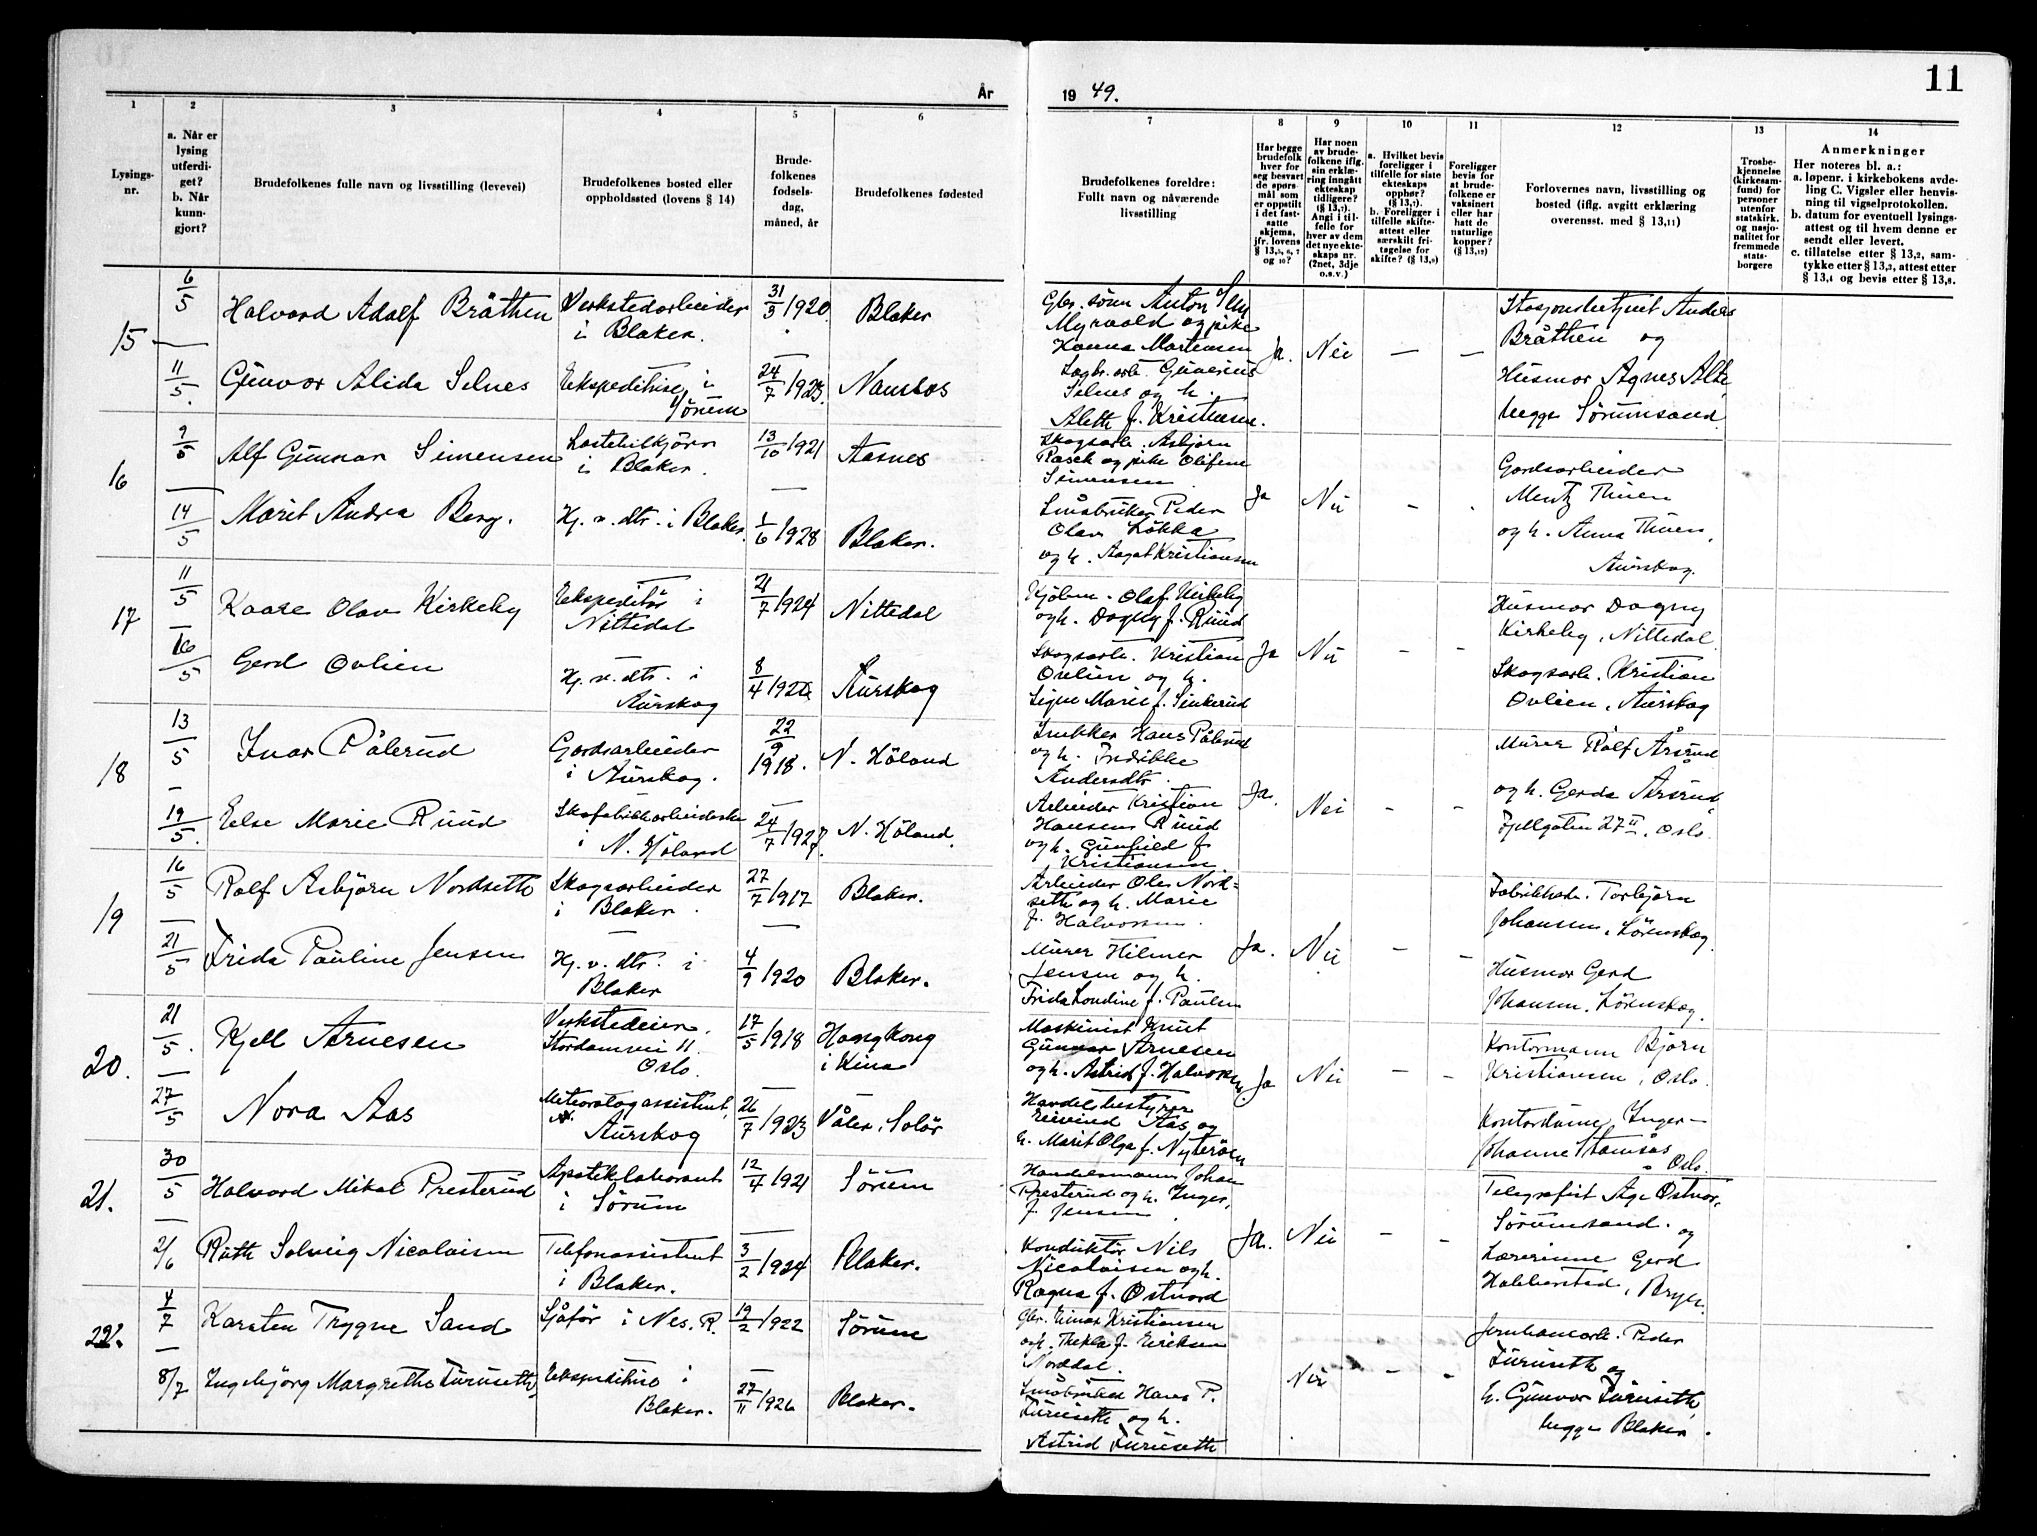 År
19 49.
11
1
2
3
4
5
6
7
8
9
10
11
12
13
14
Lysings-
nr.
a. Når er
lysing
utferdi-
get?
b. Når
kunn-
gjort?
Brudefolkenes fulle navn og livsstilling (levevei)
Brudefolkenes bosted eller
oppholdssted (lovens § 14)
Brude-
folkenes
fødsels-
dag,
måned, år
Brudefolkenes fødested
Brudefolkenes foreldre:
Fullt navn og nåværende
livsstilling
Har begge
brudefolk
hver for
seg besvart
de spørs-
mål som
er oppstilt
i det fast-
satte
skjema,
jfr. lovens
§ 13,5, 6, 7
og 10?
Har noen
av brude-
folkene iflg.
sin erklæ-
ring inngått
ekteskap
tidligere?
(§ 13,7).
Angi i til-
felle for
hver av dem
det nye ekte-
skaps nr.
(2net, 3dje
o.s.v.)
a. Hvilket bevis
foreligger i
tilfelle for siste
ekteskaps
opphør?
(§ 13,7).
b. Foreligger i
tilfelle skifte-
attest eller
særskilt fri-
tagelse for
skifte? (§ 13,8)
Foreligger
bevis for
at brude-
folkene er
vaksinert
eller har
hatt de
naturlige
kopper?
(§ 13,12)
Forlovernes navn, livsstilling og
bosted (iflg. avgitt erklæring
overensst. med § 13,11)
Trosbe-
kjennelse
(kirkesam-
fund) for
personer
utenfor
statskirk.
og nasjo-
nalitet for
fremmede
stats-
borgere
Anmerkninger
Her noteres bl. a.:
a. løpenr. i kirkebokens avde-
ling C. Vigsler eller henvis-
ning til vigselprotokollen.
b. datum for eventuell lysings-
attest og til hvem denne er
sendt eller levert.
c. tillatelse etter § 13,2, sam-
tykke etter § 13,3, attest etter
§ 13,4 og bevis etter § 13,8.
15
6/5
Halvord Adolf Bråthen
Verkstedarbeider
i Blaker.
31/3 1920
Blaker
Gbr. sönn Anton Elly
Myrvold og pike
Hanna Martensen
Ja. Nei — —
Stasjonsbetjent Anders
Bråthen og
11/5.
Gunvor Alida Selnes
Ekspeditrise i
Sörum
24/7 1923.
Namsos
Sagbr. arb. Gunerius
Selnes og h.
Aleth f. Kristensen.
Husmor Agnes Alte,
begge Sörumsand
16
9/5
Alf Gunnar Simensen
Lastebilkjörer
i Blaker.
13/10 1921
Aasnes
Skogsarb. Asbjørn
Rasck og pike Olefine
Simensen
Ja Nei - .
Gordsarbeider
Mentz Thuen
14/5
Marit Andrea Berg.
Hj. v. dtr. i Blaker.
1/6 1928
Blaker.
Småbruker Peder
Olav Lökka
og h. Aagot Kristiansen
og h. Anna Thuen,
Aurskog.
17
11/5
Kaare Olav Kirkeby
Ekspeditör i
Nittedal
21/7 1924
Nittedal
Kjöbm. Olaf Kirkeby
og h. Dagny f. Ruud
Ja Nei - -
Husmor Dagny
Kirkeby, Nittedal.
16/5
Gerd Ovlien
Hj. v. dtr. i
Aurskog
8/4
Aurskog
Skogsarb. Kristian
Ovlien og h.
Signe Marie f. Sinkerud
Skogsarb. Kristian
Ovlien, Aurskog
18
13/5
Ivar Pålerud
Gordsarbeider
i Aurskog.
22/9
1918.
N. Höland
Snekker Hans Pålerud
og h. Fredikke
Andersdtr.
Ja. Nei - -
Murer Rolf Årsrud
19/5.
Else Marie Ruud
Skofabrikkarbeiderske
i N. Höland
24/7 1927.
N. Höland.
Arbeider Kristian
Hansen Ruud
og h. Gunhild f.
Kristiansen
og h. Gerda Årsrud,
Fjellgaten 27 II, Oslo.
19
16/5
Rolf Asbjörn Nordseth
Skogsarbeider
i Blaker.
27/7 1917
Blaker.
Arbeider Ole Nord=
seth og h. Marie
f. Halvorsen.
Ja. Nei - -
Fabrikkarb. Torbjörn
Johansen, Lörenskog.
21/5
Frida Pauline Jensen
Hj. v. dtr. i
Blaker
4/9 1920
Blaker.
Murer Hilmer
Jensen og h.
Frida f. Paulsen
Husmor Gerd
Johansen, Lörenskog.
20.
21/5.
Kjell Arnesen
Verkstedeier.
Stordamvei 11.
Oslo.
17/5 1918
Hongkong
i Kina
Maskinist Knut
Gunnar Arnesen
og h. Astrid f. Halvorsen
Ja Nei - -
Kontormann Björn
Kristiansen, Oslo.
27/5
Nora Aas
Meteorologassistent,
Aurskog
26/7 1923
Våler, Solör
Handelsbestyrer
Eeivind Aas og
h. Marit Olga f. Nyteröen
Kontordame Inger-
Johanne Stamsås
Oslo.
21.
30/5
Halvord Mikal Presterud
Apoteklaborant
i Sörum
12/4 1921
Sörum
Handelsmann Johan
Presterud og h. Inger,
f. Jensen.
Ja. Nei - -
Telegrafist Åge Ostnor,
Sörumsand. og
2/6
Ruth Solveig Nicolaisen
Telefonassistent
i Blaker.
3/2 1924
Blaker.
Konduktör Nils
Nicolaisen og h.
Ragna f. Ostnord
Lærerinne Gerd
Habberstad, Bryn.
22.
4/7
Karsten Trygve Sand
Sjåför i Nes. R.
19/2 1922
Sörum
Gbr. Einar Kristiansen
og h. Thekla f. Eeriksen
Norddal.
Nei - -
Jernbanearb. Peder
Furuseth og
8/7
Ingebjörg Margrethe Furuseth,
Ekspeditrise i
Blaker.
27/11 1926
Blaker.
Småbruker Hans P.
Furuseth og h.
Astrid Furuseth
h. Gunvor Furuseth,
begge Blaker.